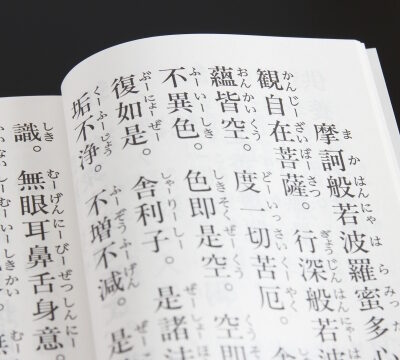 まかはんにゃはらみった
摩訶般若波羅蜜多心
かんじーざいぼーさつ ぎょうじんはんにゃ
観自在菩薩。行深般若
おんかいくう どーいっさいくーやく
蘊皆空。度一切苦厄。
ふーいーしき しきそくぜーくう くうそく
不異色。色即是空。空即
ぶーにょーぜー しゃーりーしー ぜーしょーほう
復如是。舎利子。是諸法
くーふーじょう ふーぞうふーげん ぜー
垢不浄。不増不減。是
しき むーげんにーびーぜっしんにー
識。無眼耳鼻舌身意。
ないしーむーいーしきかい